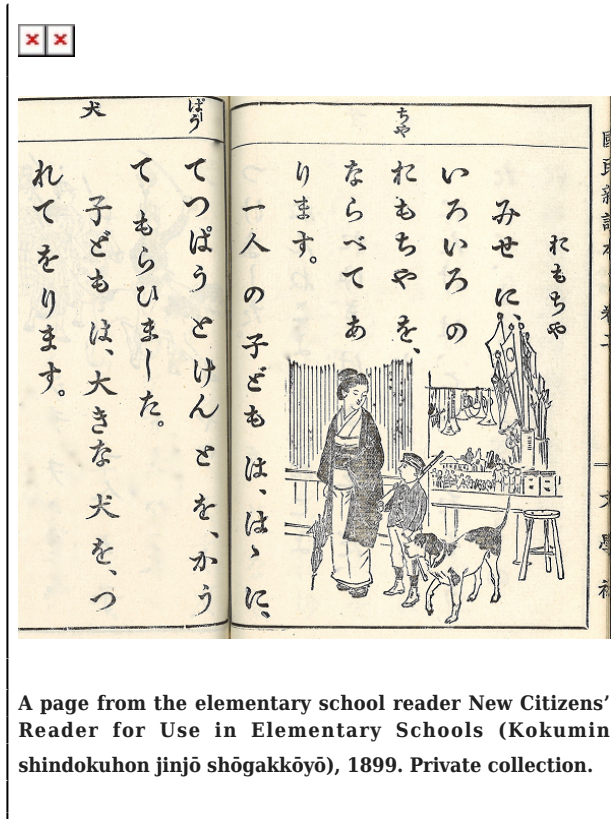 ちや
おもちや
みせ に、
いろいろ の
おもちや を、
ならべて あ
ります。
一人 の 子ども は、はゝ に、
ぱう
てつぱう と けん と を、かう
て もらひました。
犬
子ども は、大きな 犬 を、つ
れて をります。
A page from the elementary school reader New Citizens’
Reader for Use in Elementary Schools (Kokumin
shindokuhon jinjō shōgakkōyō), 1899. Private collection.